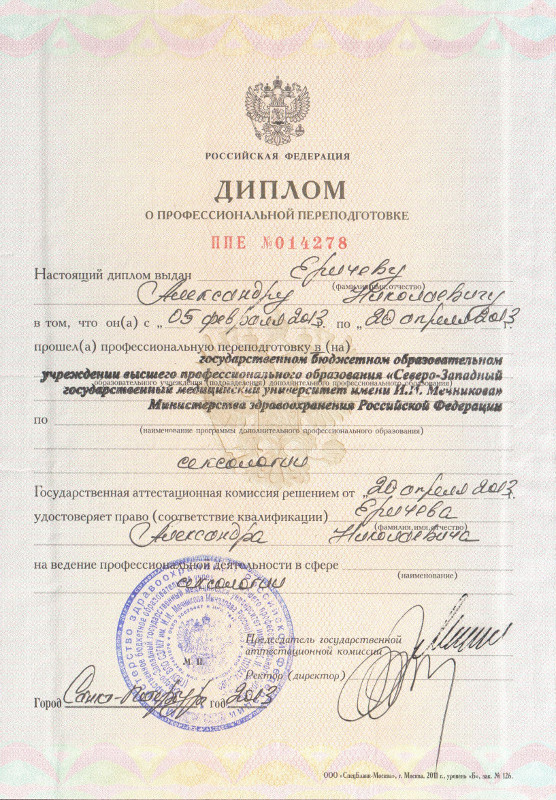 РОССИЙСКАЯ ФЕДЕРАЦИЯ
ДИПЛОМ
О ПРОФЕССИОНАЛЬНОЙ ПЕРЕПОДГОТОВКЕ
ППЕ №014278
Настоящий диплом выдан Еричеву
(фамилия, имя, отчество)
Александру Николаевичу
в том, что он(а) с „05 февраля 2013 по „20 апреля 2013
прошел(а) профессиональную переподготовку в (на)
государственном бюджетном образовательном
учреждении высшего профессионального образования «Северо-Западный
образовательного учреждения (подразделения) дополнительного профессионального образования)
государственный медицинский университет имени И.И. Мечникова»
Министерства здравоохранения Российской Федерации
по
(наименование программы дополнительного профессионального образования)
сексологии
Государственная аттестационная комиссия решением от „20 апреля 2013
удостоверяет право (соответствие квалификации) Еричева
(фамилия, имя, отчество)
Александра Николаевича
на ведение профессиональной деятельности в сфере
(наименование)
сексологии
Председатель государственной
аттестационной комиссии
М. П.
Ректор (директор)
Город Санкт-Петербург год 2013
ООО «СпецБланк-Москва», г. Москва, 2011 г., уровень «Б», зак. № 126.